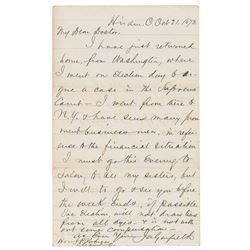 Hiram, O. Oct 21, 1873
My Dear Doctor.
I have just returned
home, from Washington, where
I went on election day to ar-
gue a case in the Supreme
Court – I went from there to
N.Y. & have seen many prom-
inent business-men, in refer-
ence to the financial situation
I must go this evening to
Solon, to see my sisters, but
I will to go & see you before
the week ends, if possible
The election will not draw tears
from all eyes – it is not with-
out some compensation –
As Ever Yours J. A. Garfield